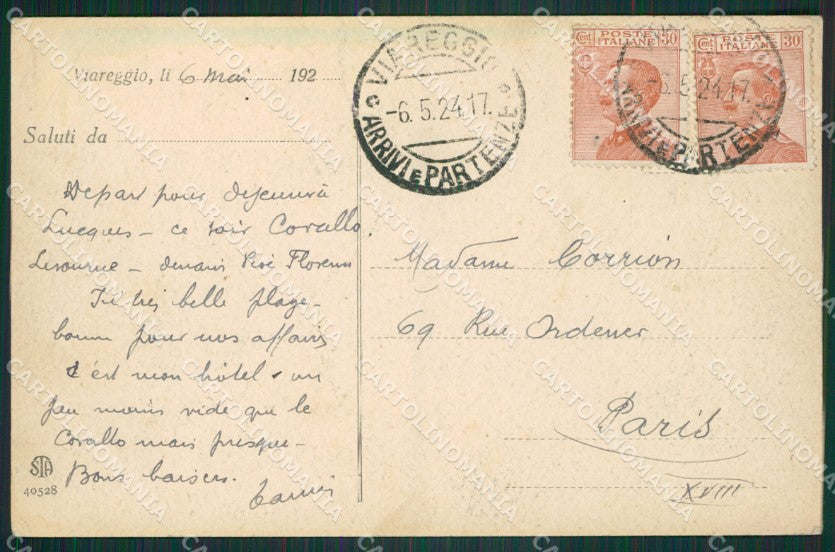 Viareggio, lì 6 Mai 192
Saluti da
Depart pour dejeuner à
Lucques – ce soir Corallo
Livourne – demain Pise Florence
Ici très belle plage –
bonne pour nos affaires
C'est mon hôtel – un
peu moins vide que le
Corallo mais presque –
Bons baisers.
STA
40528
VIAREGGIO
-6.5.24.17.
ARRIVI E PARTENZE
Cent. POSTE ITALIANE 30
Cent. POSTE ITALIANE 30
-6.5.24.17.
ARRIVI E PARTENZE
Madame Corrion
69 Rue Ordener
Paris
XVIII
CARTOLINOMANIA